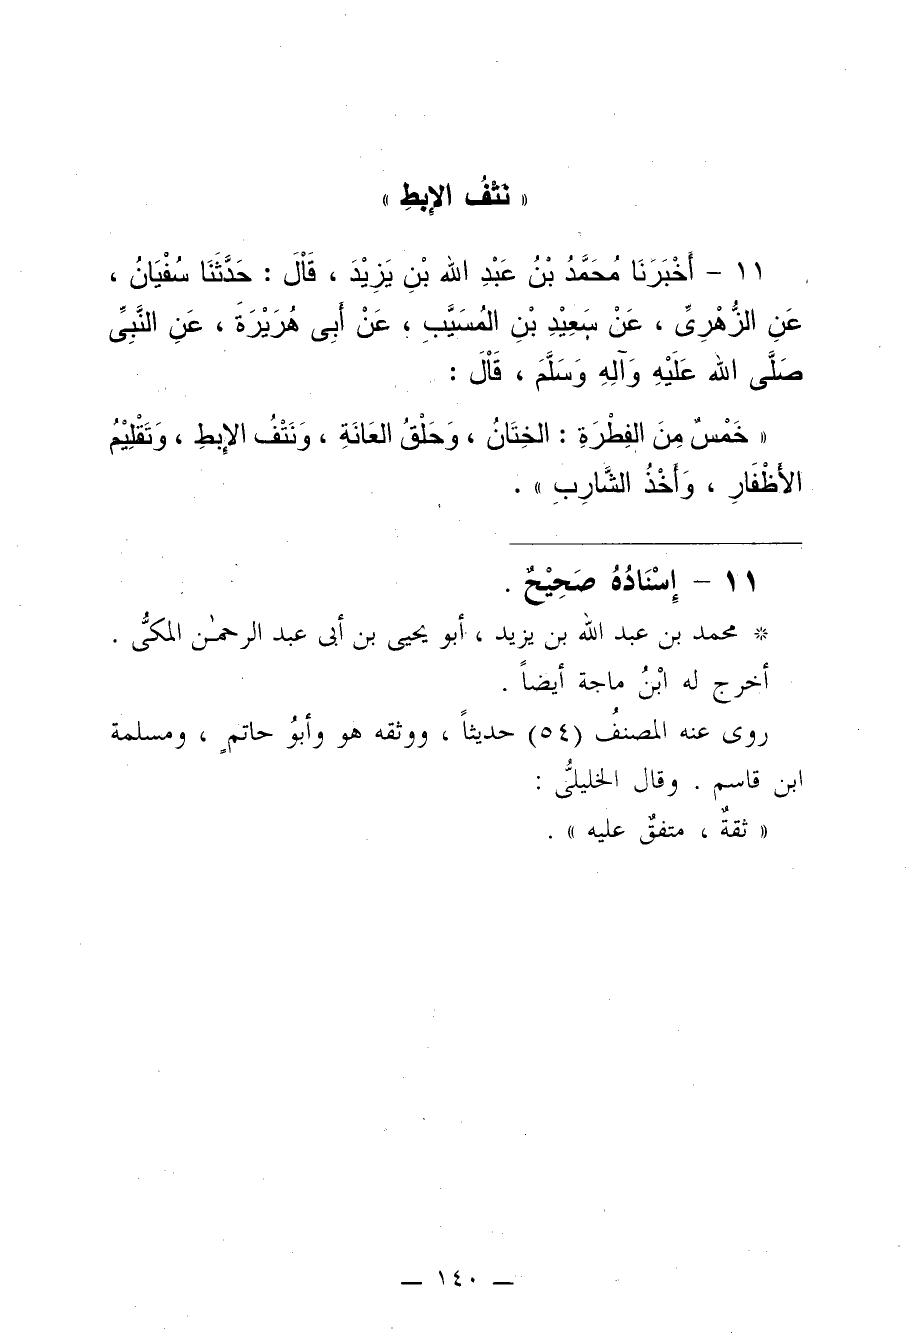 « نَتْفُ الإِبطِ »
١١ - أَخْبَرَنَا مُحَمَّدُ بْنُ عَبْدِ الله بْنِ يَزِيْدَ ، قَاْلَ : حَدَّثَنَا سُفْيَانُ ،
عَنِ الزُّهْرِىِّ ، عَنْ سَعِيْدِ بْنِ المُسَيَّبِ ، عَنْ أَبِى هُرَيْرَةَ ، عَنِ النَّبِىِّ
صَلَّى الله عَلَيْهِ وَآلِهِ وَسَلَّمَ ، قَاْلَ :
« خَمْسٌ مِنَ الفِطْرَةِ : الخِتَانُ ، وَحَلْقُ العَانَةِ ، وَنَتْفُ الإِبطِ ، وَتَقْلِيْمُ
الأَظْفَارِ ، وَأَخْذُ الشَّارِبِ » .
١١ - إِسْنَادُهُ صَحِيْحٌ .
* محمد بن عبد الله بن يزيد ، أبو يحيى بن أبى عبد الرحمٰن المكىُّ .
أخرج له ابْنُ ماجة أيضاً .
روى عنه المصنفُ (٥٤) حديثاً ، ووثقه هو وأبوُ حاتمٍ ، ومسلمة
ابن قاسم . وقال الخليلىُّ :
« ثقةٌ ، متفقٌ عليه » .
— ١٤٠ —